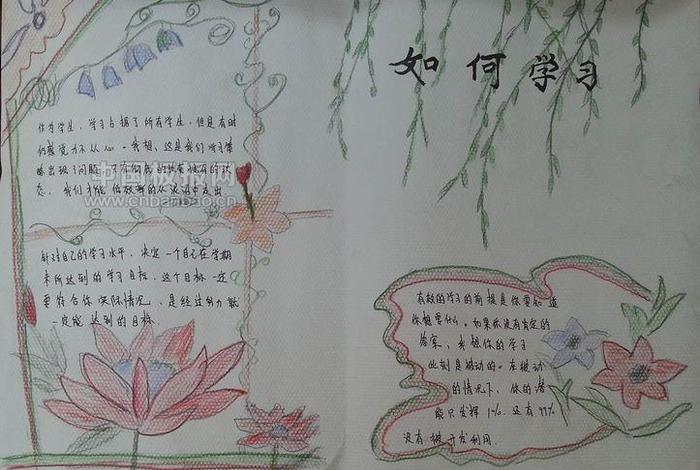 如何学习
作为学生，学习占据了所有学生，但是有时
们感觉力不从心一我想，这是我们学习策
略出现了问题，
态，我们才能
中国板报网
www.cnbanbao.cn
针对自己的学习水平，决定一个自己在学期
末所达到的学习目标，这个目标一定
要符合你实际情况、是经过努力就
一定能达到的目标.
有效的学习的前提是你要知道
你想要什么。如果你没有肯定的
答案，我想你的学习
此刻是被动的。在被动
的情况下，你的潜
能只发挥1%.还有99%
没有被开发利用.